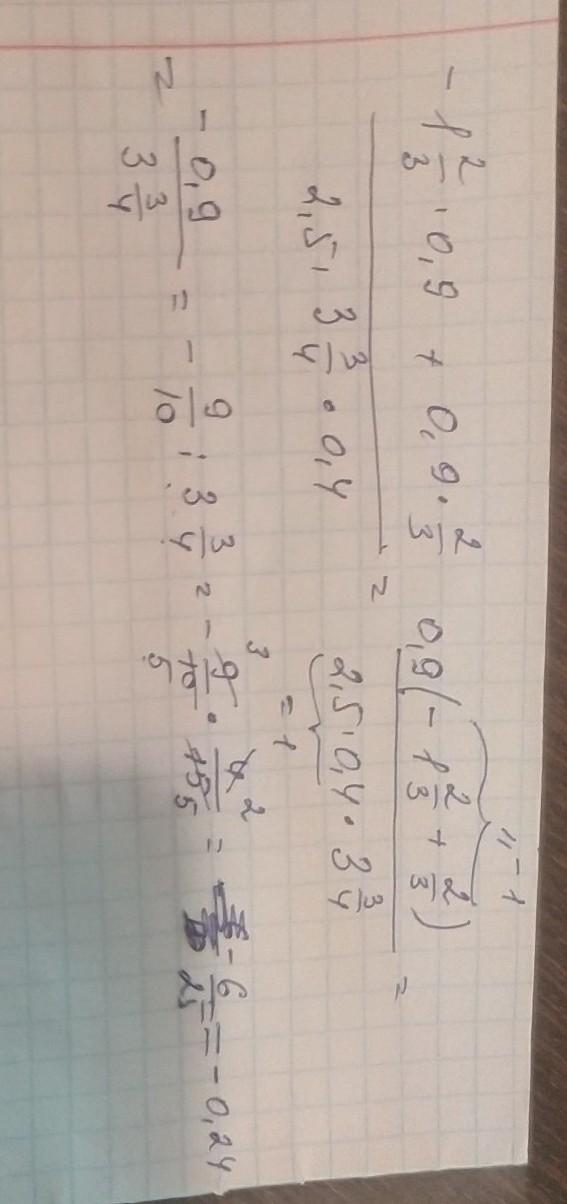 (-1 2/3 · 0,9 + 0,9 · 2/3) / (2,5 · 3 3/4 · 0,4) = 0,9(-1 2/3 + 2/3) / (2,5 · 0,4 · 3 3/4) =
= -1
= 1
= -0,9 / 3 3/4 = - 9/10 : 3 3/4 = - 9/10 · 4/15 = - 6/25 = -0,24
3 2
5 5